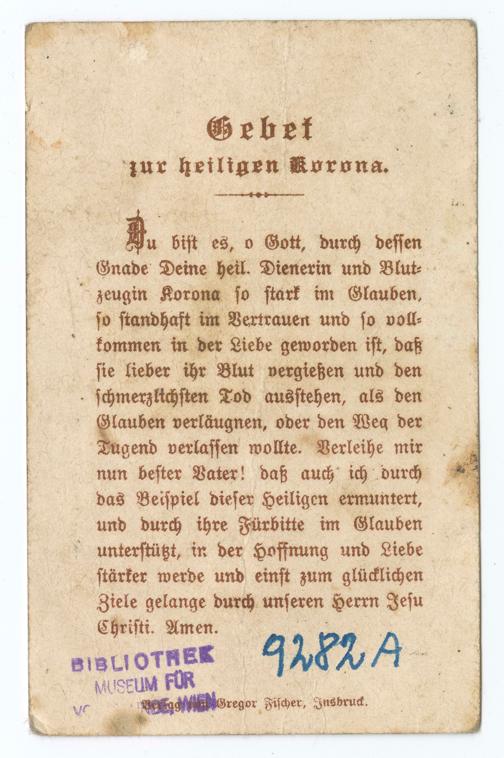 Gebet
zur heiligen Korona.
Du bist es, o Gott, durch dessen
Gnade Deine heil. Dienerin und Blut-
zeugin Korona so stark im Glauben,
so standhaft im Vertrauen und so voll-
kommen in der Liebe geworden ist, daß
sie lieber ihr Blut vergießen und den
schmerzlichsten Tod ausstehen, als den
Glauben verläugnen, oder den Weg der
Tugend verlassen wollte. Verleihe mir
nun bester Vater! daß auch ich durch
das Beispiel dieser Heiligen ermuntert,
und durch ihre Fürbitte im Glauben
unterstützt, in der Hoffnung und Liebe
stärker werde und einst zum glücklichen
Ziele gelange durch unseren Herrn Jesu
Christi. Amen.
9282A
BIBLIOTHEK
MUSEUM FÜR
WIEN
Verlag von Gregor Fischer, Innsbruck.